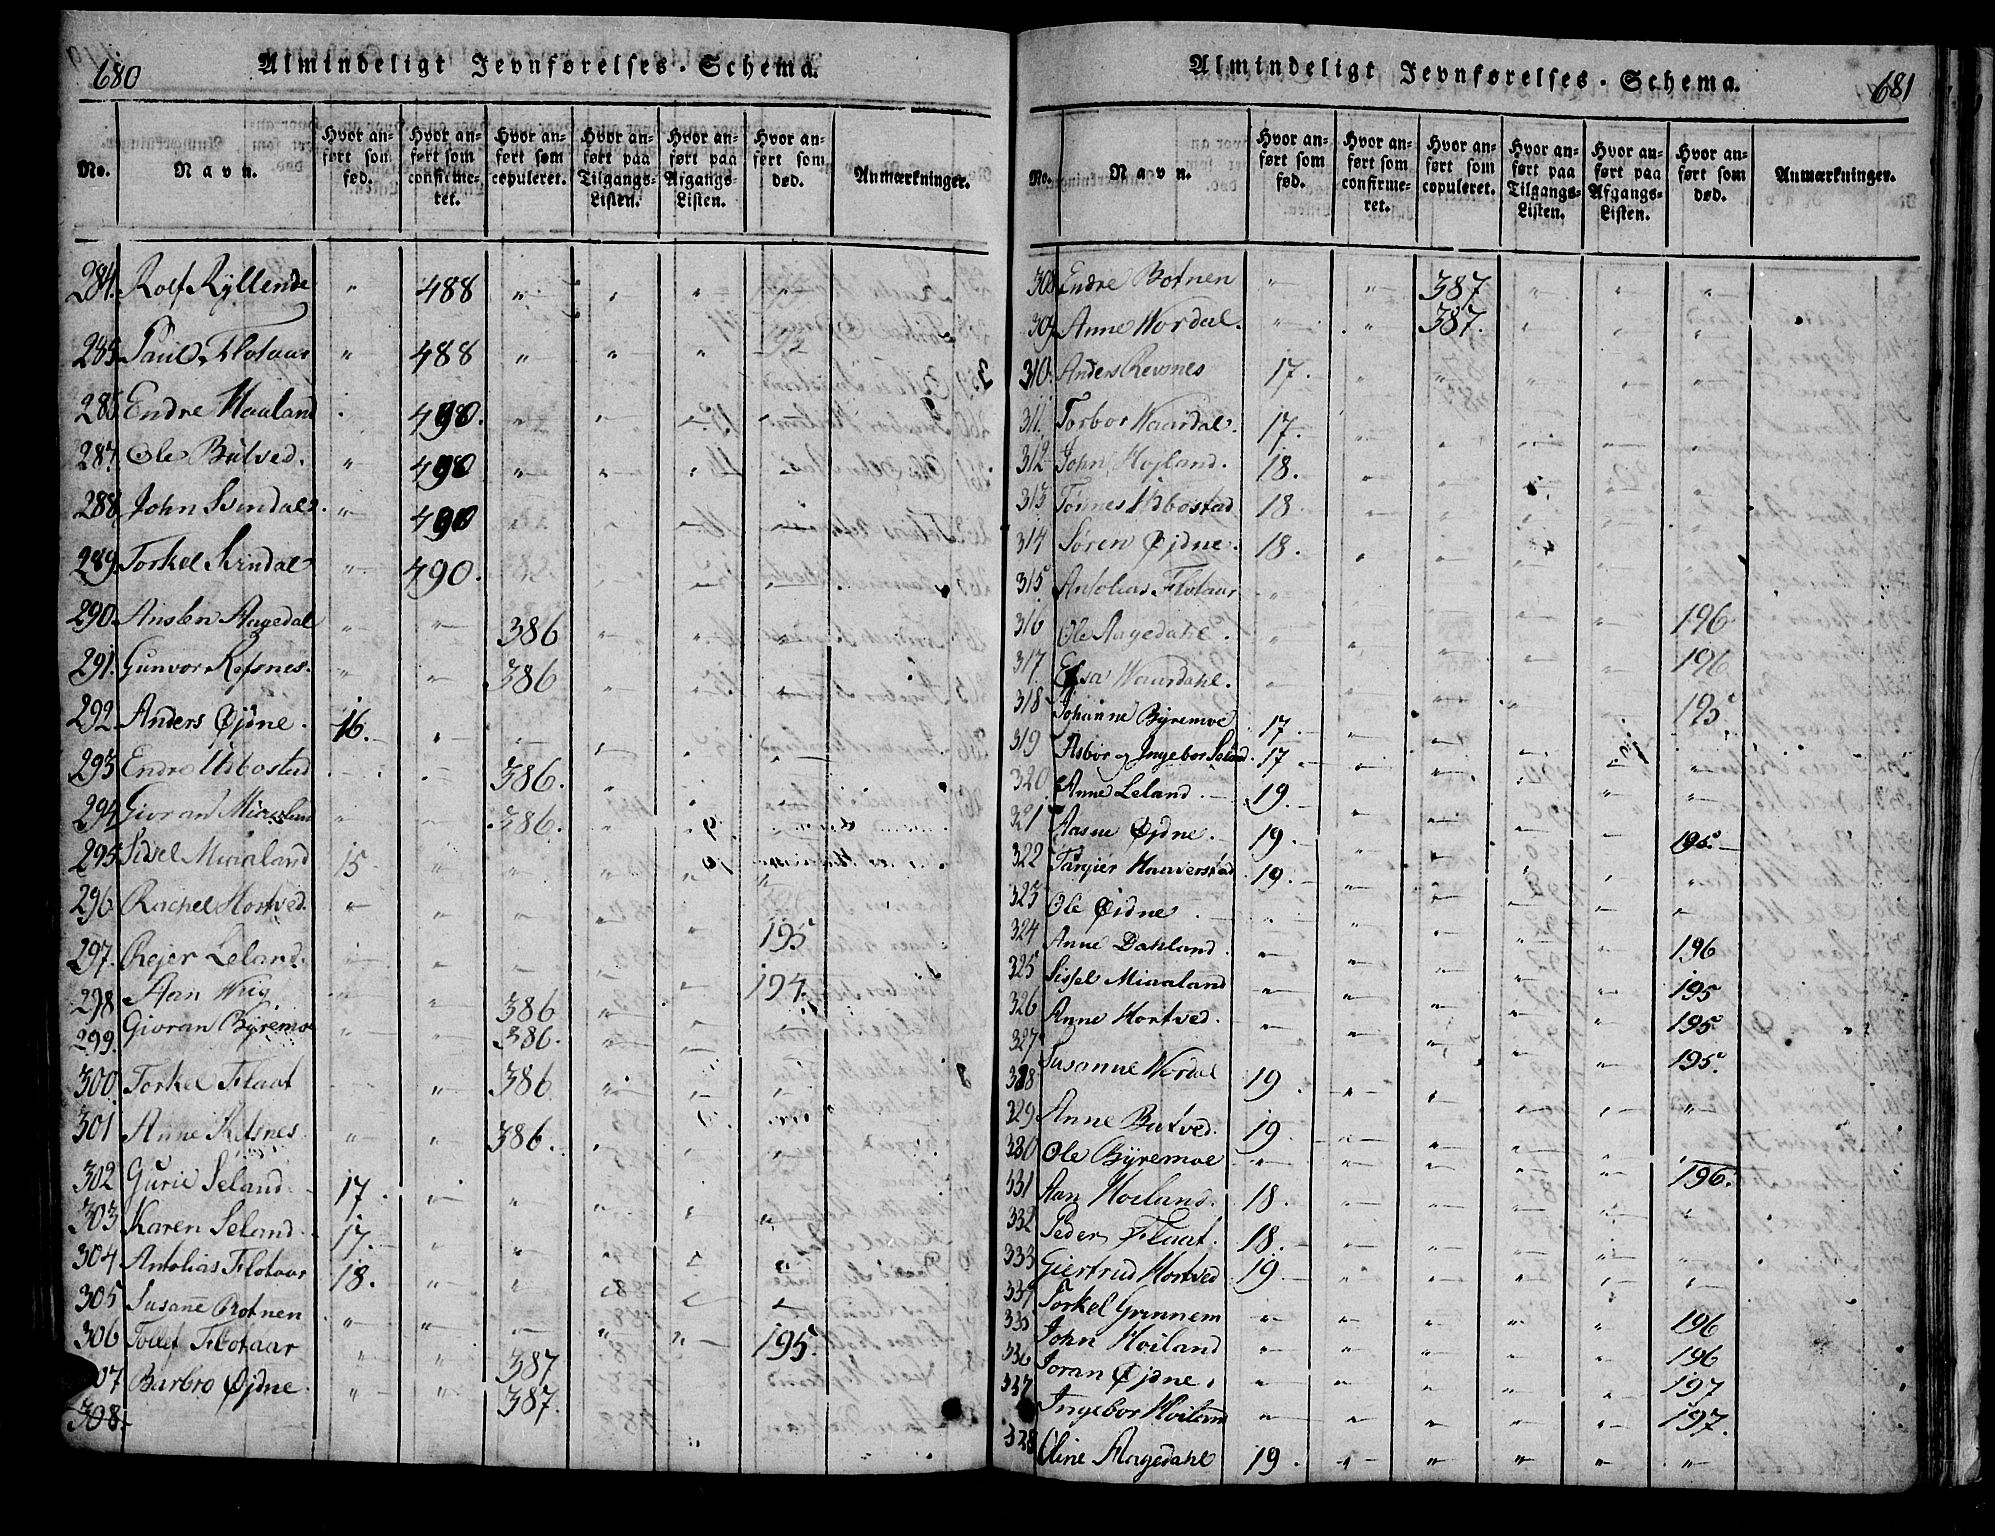 680
Almindeligt Jevnførelses-Schema.
No. Navn. Hvor anført som fød. Hvor anført som confirmeret. Hvor anført som copuleret. Hvor anført paa Tilgangs-Listen. Hvor anført paa Afgangs-Listen. Hvor anført som død. Anmærkninger.
284. Rolf Ryllende " 488 " " " "
285. Paul Flotaar " 488 " " "
286 Endre Haaland 490.
287. Ole Butved. " 490 " " " "
288. John Svindal. " 490
289. Torkel Svindal " 490.
290. Ansten Aagedal " " 386 " " "
291. Gunvor Refsnes. " " 386 " " "
292 Anders Øjdne. 16. " "
293 Endre Udbostad 386.
294 Gioran Miaaland " " 386.
295 Sidsel Miaaland 15 " " " " "
296 Rachel Hortved. " " " " " 195
297. Rejer Leland. " " " " " 194.
298 Aan Wiig " " 386
299. Gioran Byremoe " " 386.
300. Torkel Flaat " 386 " " "
301 Anne Refsnes. " " 386. " " "
302 Gurie Seland. 17. " " " " "
303 Karen Seland. 17. " " " " "
304 Antolias Flotaar 18. " "
305 Susane Botnen " " " " " 195.
306 Tollef Flotaar " " 387
307 Barbro Øjdne. " " 387.
308.
681
Almindeligt Jevnførelses-Schema.
No. Navn. Hvor anført som fød. Hvor anført som confirmeret. Hvor anført som copuleret. Hvor anført paa Tilgangs-Listen. Hvor anført paa Afgangs-Listen. Hvor anført som død. Anmærkninger.
308 Endre Botnen " " 387 " " "
309 Anne Wordal. " " 387. " " "
310. Anders Revsnes 17. " " " " "
311. Torbor Waardal. 17. " " " " "
312 John Højland. 18. " " " " "
313 Tønnes Udbostad 18 " " " " "
314 Søren Øjdne. 18. " " " " "
315 Antolias Flotaar " " " " " 196
316 Ole Aagedahl. " " " " " 196
317. Elsa Waardahl. " " " " " 195
318 Johanne Byremoe 17. " " " "
319 Asbor og Ingebor Seland. 17 " " " "
320 Anne Leland. 19. " " " "
321 Aasne Øjdne. 19. " " " " 195.
322 Targier Haaverstad 19. " " " " "
323 Ole Øidne " " " " " 196
324 Anne Dahland. " " " " " 195
325 Sissel Miaaland " " " " " 195
326 Anne Hortved. " " " " " 195
327
328 Susanne Wordal 19. " " " " "
329 Anne Butved. 19. " " " "
330 Ole Byremoe " " " " " 196.
331 Aan Hoiland. 18. " " " " "
332 Peder Flaat. 18. " " " " "
333 Giertrud Hortved 19. " " " " "
334 Torkel Grinnem " " " " " 196
335 John Hoiland " " " " " 196
336 Joran Øjdne. " " " " " 197
337 Ingebor Hoiland " " " " " 197.
338 Oline Aagedahl 19. " " " " "